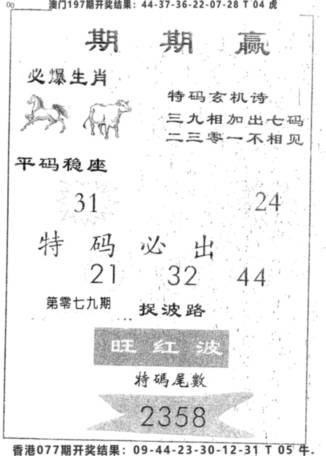 澳门197期开奖结果：44-37-36-22-07-28 T 04 虎
期 期 赢
必爆生肖
特码玄机诗
三九相加出七码
二三零一不相见
平码稳座
31 24
特码必出
21 32 44
第零七九期 捉波路
旺红波
特碼尾數
2358
香港077期开奖结果：09-44-23-30-12-31 T 05 牛.